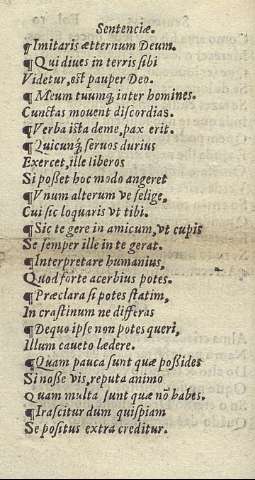 Sentenciæ.
¶Imitaris ætternum Deum.
¶Qui diues in terris sibi
Videtur, est pauper Deo.
¶Meum tuumq̃ inter homines.
Cunctas mouent discordias.
¶Verba ista deme, pax erit.
¶Quicunq̃ seruos durius
Exercet, ille liberos
Si posset hoc modo angeret
¶Vnum alterum ve selige,
Cui sic loquaris vt tibi.
¶Sic te gere in amicum, vt cupis
Se semper ille in te gerat.
¶Interpretare humanius,
Quod forte acerbius potes.
¶Præclara si potes statim,
In crastinum ne differas
¶Dequo ipse non potes queri,
Illum caueto lædere.
¶Quam pauca sunt quæ possides
Si nosse vis, reputa animo
Quam multa sunt quæ nõ habes.
¶Irascitur dum quispiam
Se positus extra creditur.